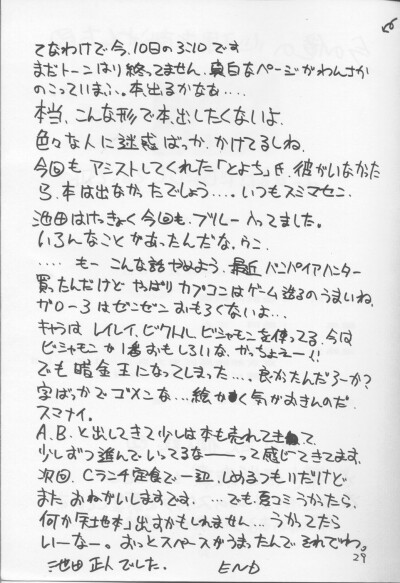 てなわけで今、10日の3:10です
まだトーンはり終ってません、真白なページがわんさか
のこっていまふ。本、出るかなぁ・・・・
本当、こんな形で本、出したくないよ、
色々な人に迷惑ばっか、かけてるしね、
今回も、アシストしてくれた「とよち」氏、彼がいなかった
ら、本は出なかったでしょう・・・。いつもスミマセン、
池田はけっきょく今回も、ブルー入ってました。
いろんなことがあったんだな、らこ、
・・・・ もー こんな話やめよう、最近 バンパイアハンター
買ったんだけど やっぱり カプコンはゲーム造るのうまいね、
ガロー3はゼンゼン おもろくないよ・・・
キャラは レイレイ、ビクトル、ビシャモンを使ってる、今は
ビシャモンが1番おもしろいな、かっちょえー!!
でも 暗金王になってしまった・・・、良かったんだろーか?
字ばっかでゴメンな・・・絵かく気がおきんのだ
スマナイ。
A.B.と出してきて少しは本も売れてきて、
少しずつ進んでいってるなーーって感じてきてます、
次回、Cランチ定食で一応、しめるつもりだけど
また おねがいしますです、 ・・・でも、夏コミうかったら、
何か「本」出すかもしれません・・・うかってたら
いーなー。おっとスペースがうまったんで それでわ。
池田 正人でした。 END
29